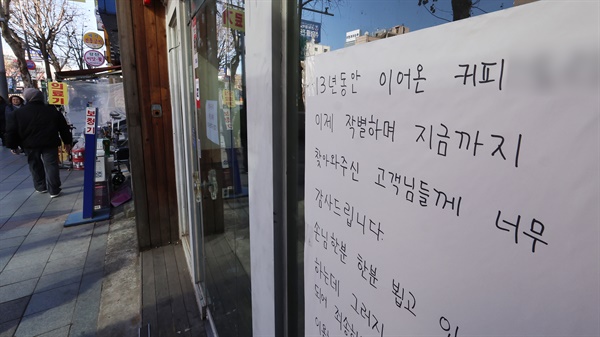 의료기
보청기
13년동안 이어온 커피
이제 작별하며 지금까지
찾아와주신 고객님들께 너무
감사드립니다.
손님한분 한분 뵙고
하는데 그러지
되어 죄송하